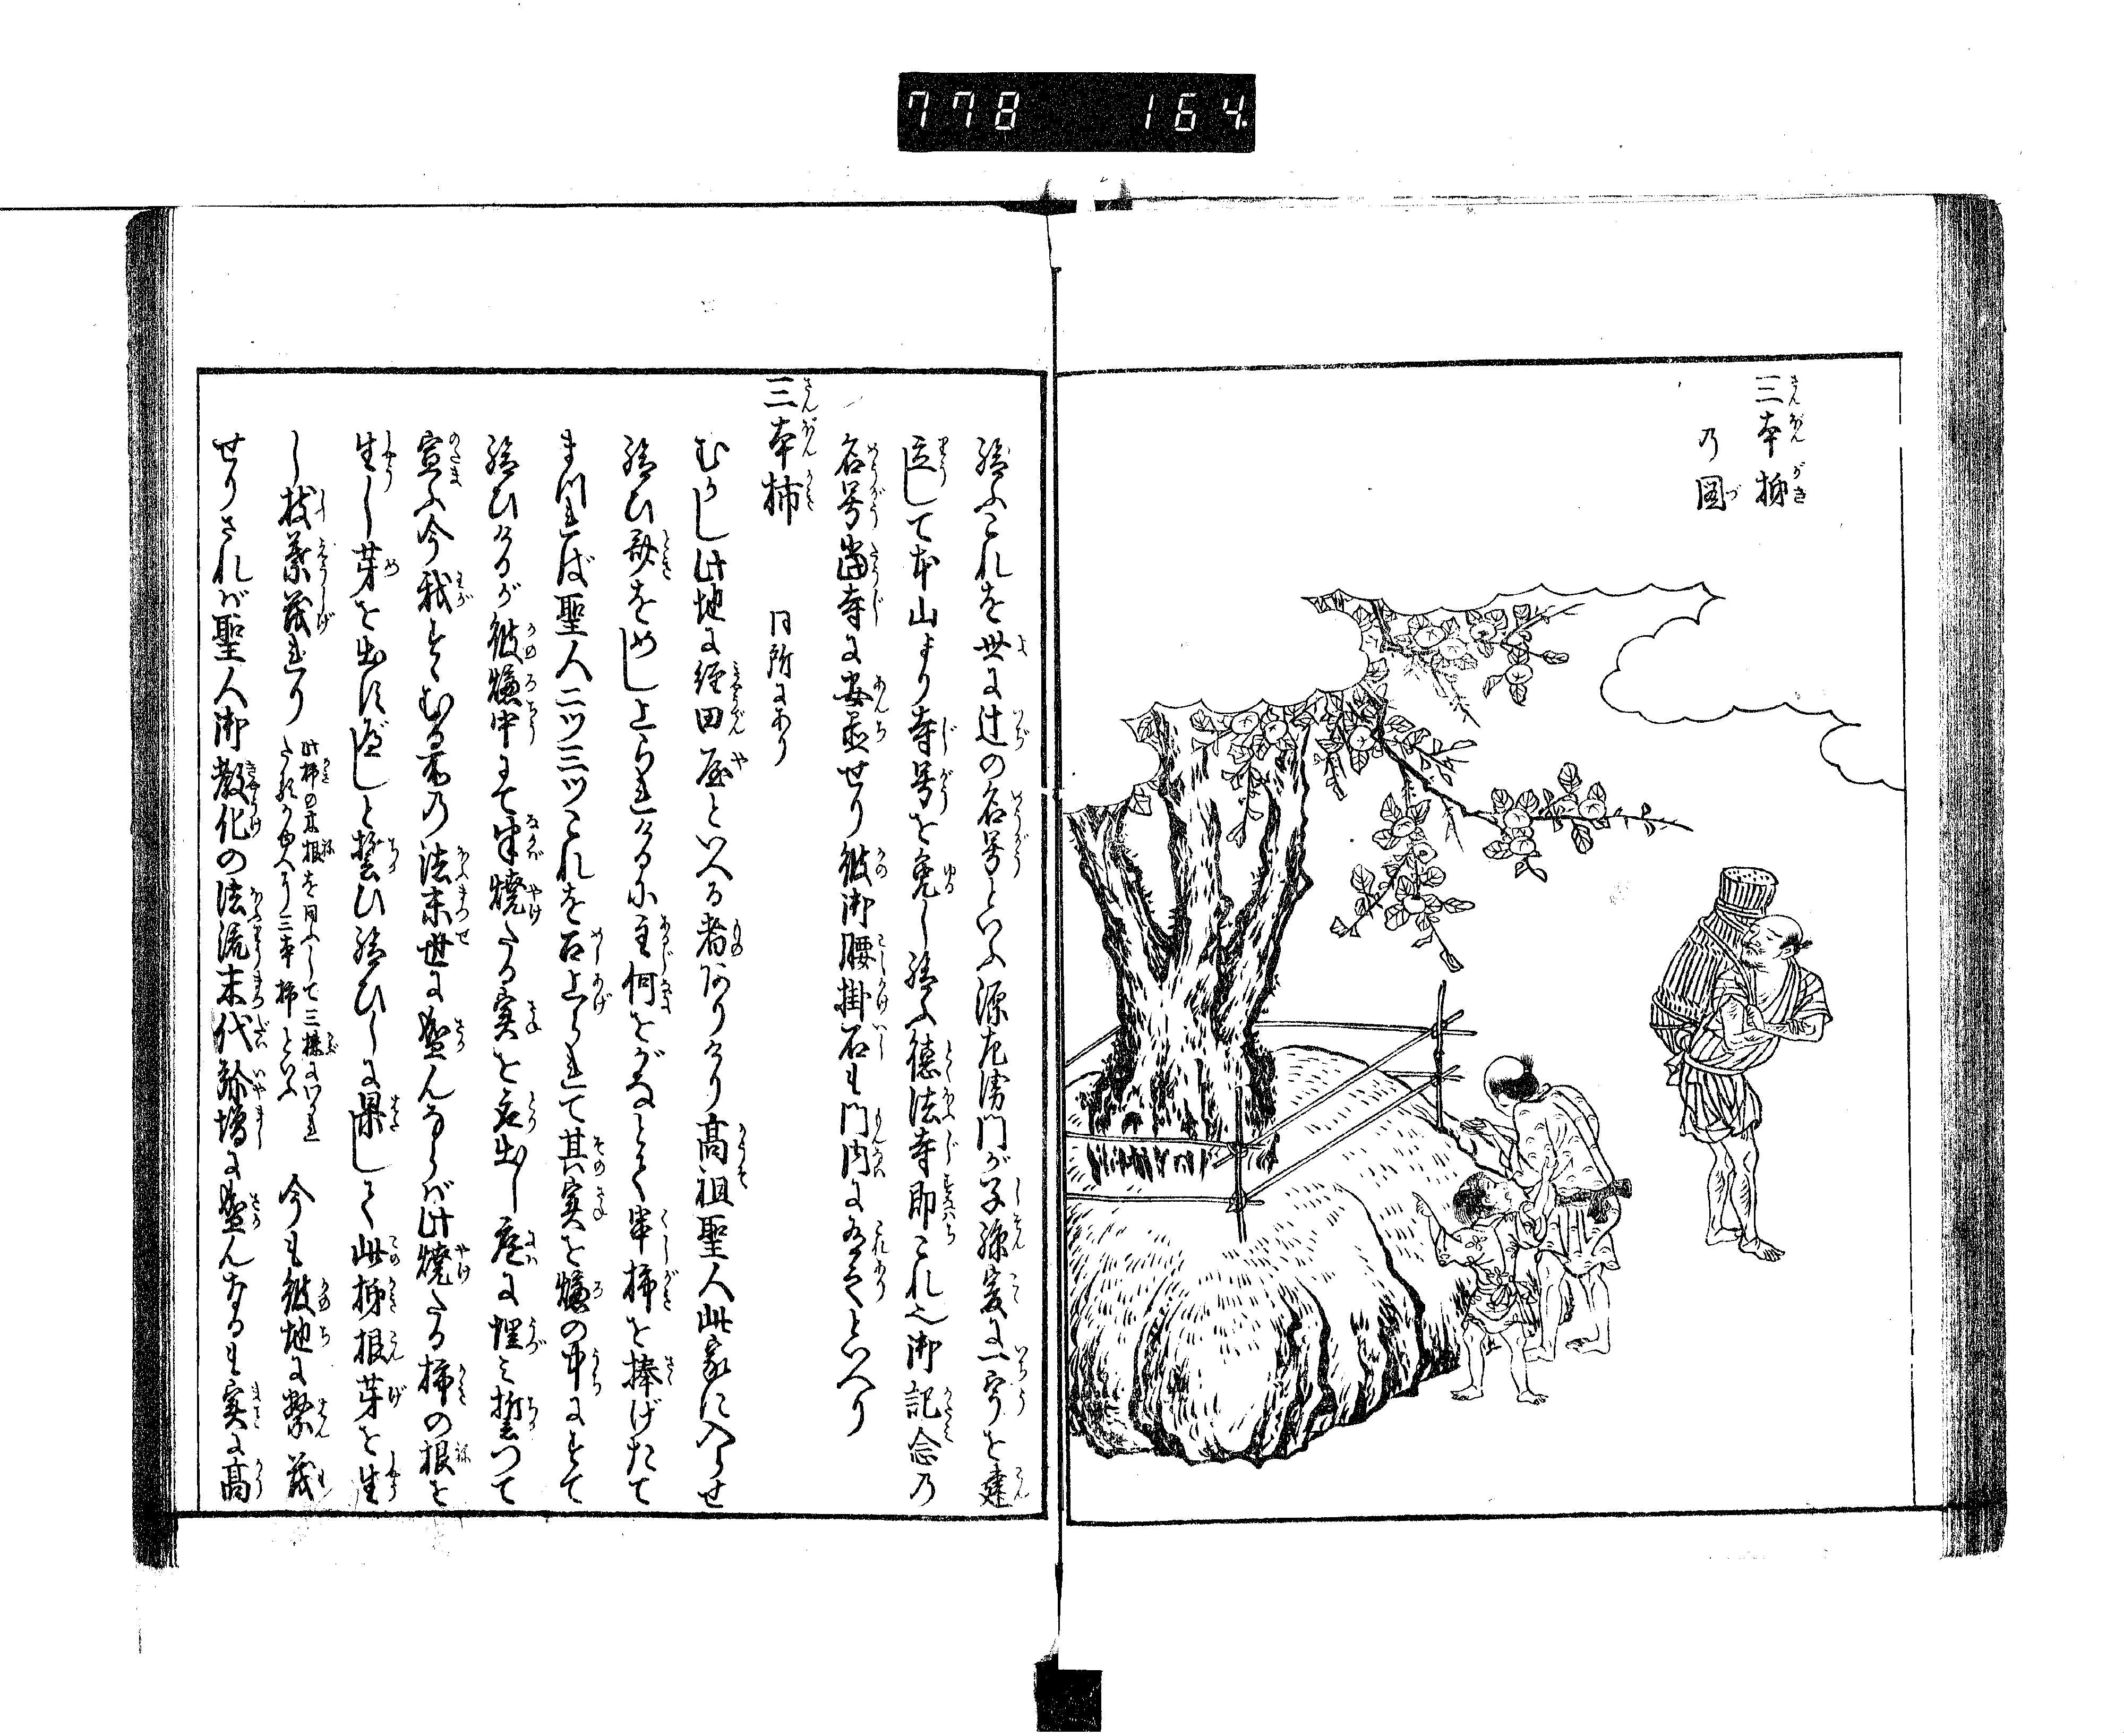 778 164
三本柿
乃図
給ふこれを世に辻の名号といふ源左衛門が子孫爰に一宇を建
立して本山より寺号を免し給ふ徳法寺即これ也御記念の
名号当寺に安置せり彼御腰掛石も門内に といへり
三本柿 同所にあり
むかし此地に経田屋といへる者ありけり高祖聖人此家に入らせ
給ひ斎をめし上られけるに主何をがなとて串柿を捧げたて
まつれば聖人二ツ三ツこれを召上られて其実を爐の中にすて
給ひけるが彼爐中にて半焼たる実を取出し庭に埋み誓つて
宣ふ今我すゝむる所の法末世に盛んならば此焼たる柿の根を
生し芽を出すべしと誓ひ給ひしに果して此柿根芽を生
し枝葉茂れり
此柿の木根を同ふして三株にわかれ
たるゆへに三本柿といふ
今も彼地に繁茂
せりされば聖人御教化の法流末代弥増に盛んなるも実に高